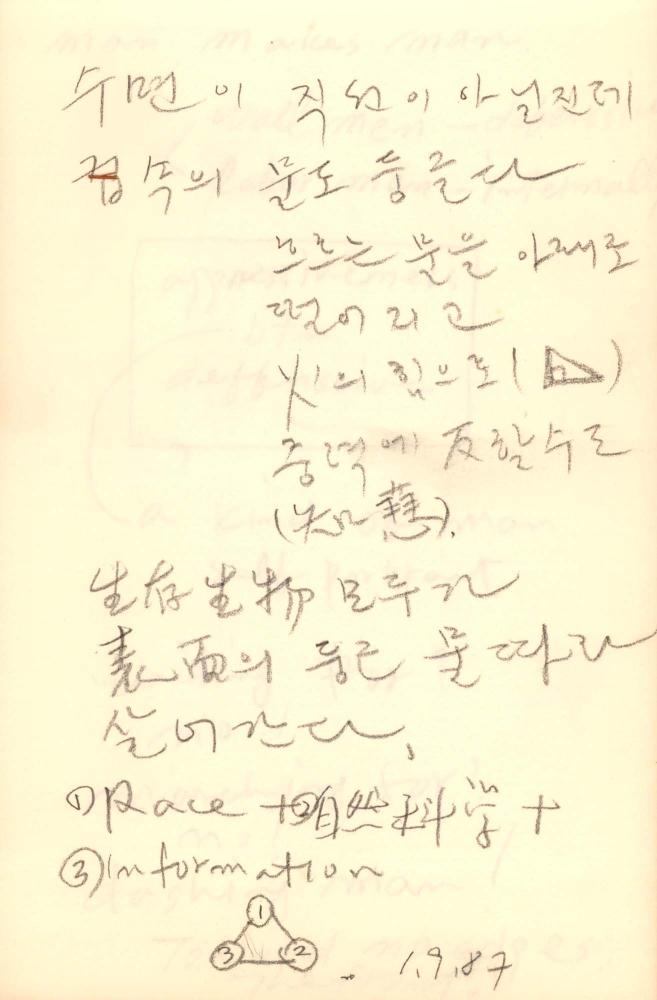 수면이 직선이 아닐진데
컵속의 물도 둥글다
흐르는 물을 아래로
떨어지고
빛의 힘으로 ( )
중력에 反할수도
(知慧).
生存生物 모두가
表面의 둥근 물따라
살어간다.
① Race + ② 自然科学 +
③ Information
①
③ ②
1.9.87